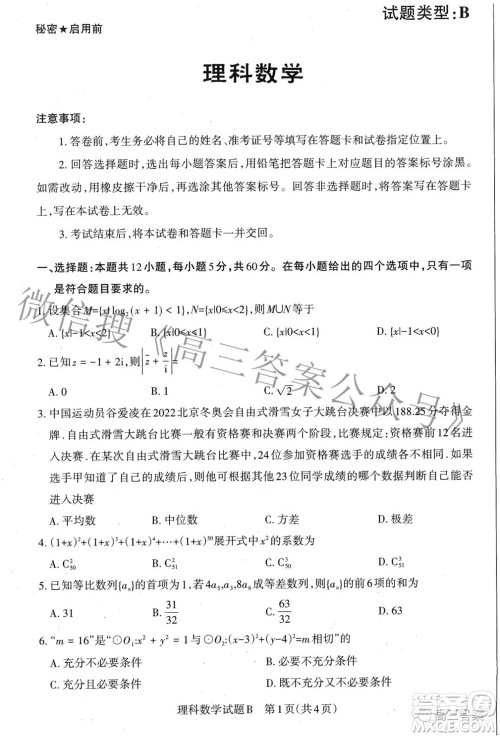 试题类型:B
秘密★启用前
理科数学
注意事项:
1. 答卷前,考生务必将自己的姓名、准考证号等填写在答题卡和试卷指定位置上。
2. 回答选择题时,选出每小题答案后,用铅笔把答题卡上对应题目的答案标号涂黑。
如需改动,用橡皮擦干净后,再选涂其他答案标号。回答非选择题时,将答案写在答题卡
上,写在本试卷上无效。
3. 考试结束后,将本试卷和答题卡一并交回。
一、选择题:本题共12小题,每小题5分,共60分。在每小题给出的四个选项中,只有一项
是符合题目要求的。
1. 设集合M={x|log₂(x+1)<1},N={x|0≤x<2},则M∪N等于
A. {x|-1<x<2} B. {x|0≤x<2} C. {x|0≤x<1} D. {x|-1<x<1}
2. 已知z=-1+2i,则|z̄+z/i|=
A. 0 B. 1 C. √2 D. 2
3. 中国运动员谷爱凌在2022北京冬奥会自由式滑雪女子大跳台决赛中以188.25分夺得金
牌. 自由式滑雪大跳台比赛一般有资格赛和决赛两个阶段,比赛规定:资格赛前12名进入
决赛. 在某次自由式滑雪大跳台比赛中,24位参加资格赛选手的成绩各不相同. 如果
选手甲知道了自己的成绩后,则他可根据其他23位同学成绩的哪个数据判断自己能否
进入决赛
A. 平均数 B. 中位数 C. 方差 D. 极差
4. (1+x)²+(1+x)³+(1+x)⁴+⋯+(1+x)⁵⁰展开式中x²的系数为
A. C²₅₁ B. C³₅₁ C. C²₅₀ D. C³₅₀
5. 已知等比数列{aₙ}的首项为1,若4a₁,a₃,2a₂成等差数列,则{aₙ}的前6项的和为
A. 31 B. 31/32 C. 63/32 D. 63
6. “m=16”是“⊙O₁:x²+y²=1与⊙O₂:(x-3)²+(y-4)²=m相切”的
A. 充分不必要条件 B. 必要不充分条件
C. 充要条件 D. 既不充分也不必要条件
理科数学试题B 第1页(共4页)
微信搜《高三答案公众号》